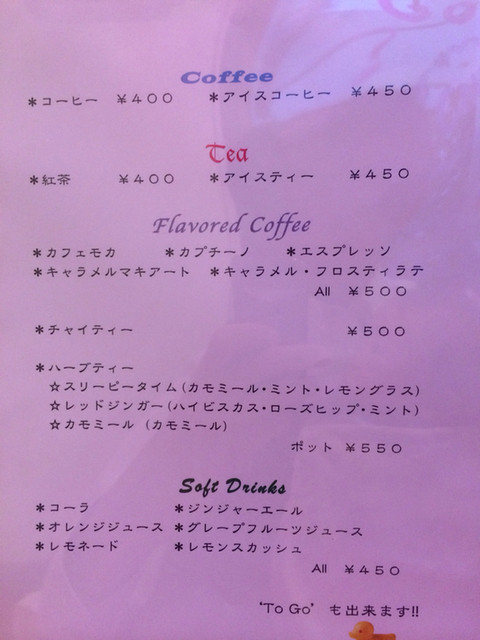 Coffee
＊コーヒー ￥４００ ＊アイスコーヒー ￥４５０
Tea
＊紅茶 ￥４００ ＊アイスティー ￥４５０
Flavored Coffee
＊カフェモカ ＊カプチーノ ＊エスプレッソ
＊キャラメルマキアート ＊キャラメル・フロスティラテ
All ￥５００
＊チャイティー ￥５００
＊ハーブティー
☆スリーピータイム(カモミール・ミント・レモングラス)
☆レッドジンガー(ハイビスカス・ローズヒップ・ミント)
☆カモミール (カモミール)
ポット ￥５５０
Soft Drinks
＊コーラ ＊ジンジャーエール
＊オレンジジュース ＊グレープフルーツジュース
＊レモネード ＊レモンスカッシュ
All ￥４５０
'To Go' も出来ます!!